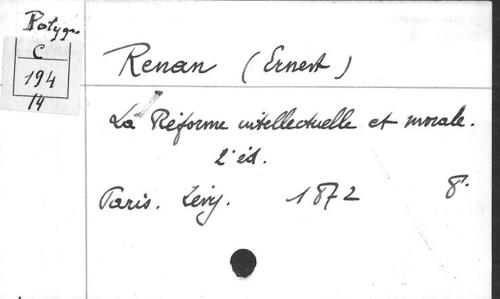 Polygr.
C
194
14
Renan (Ernest)
La Réforme intellectuelle et morale.
2e éd.
Paris. Lévy. 1872 8°.